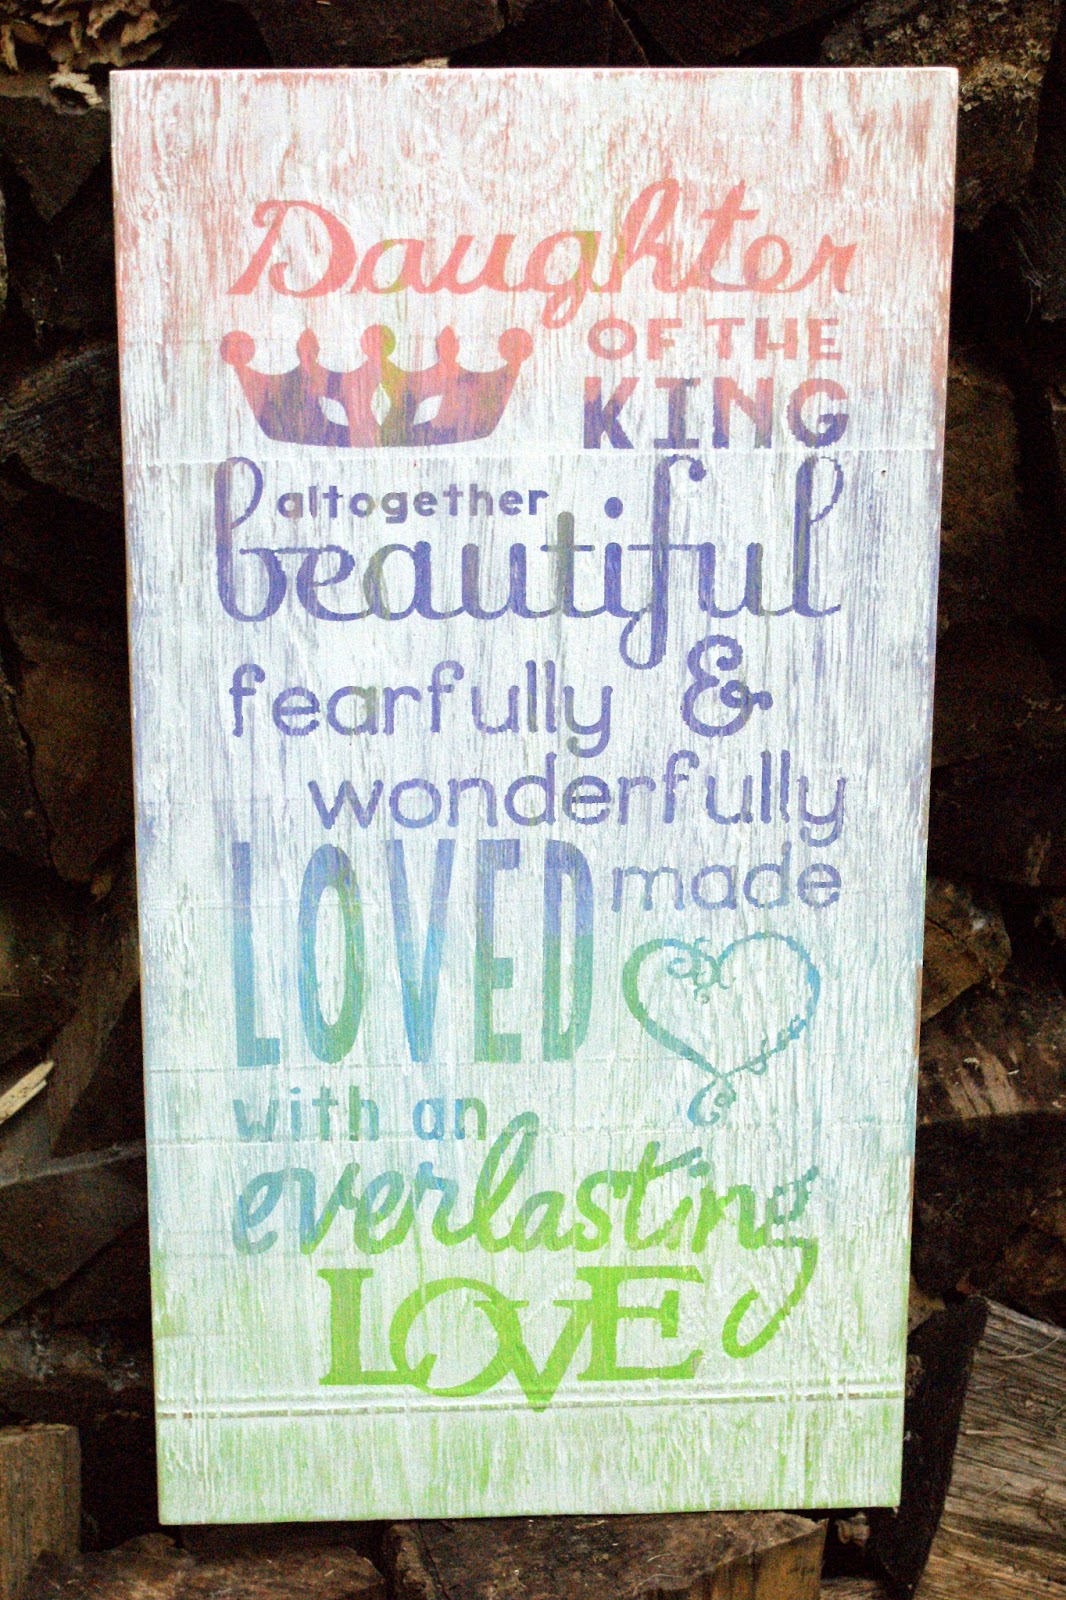 Daughter
OF THE
KING
altogether
beautiful
fearfully &
wonderfully
LOVED made
with an
everlasting
LOVE